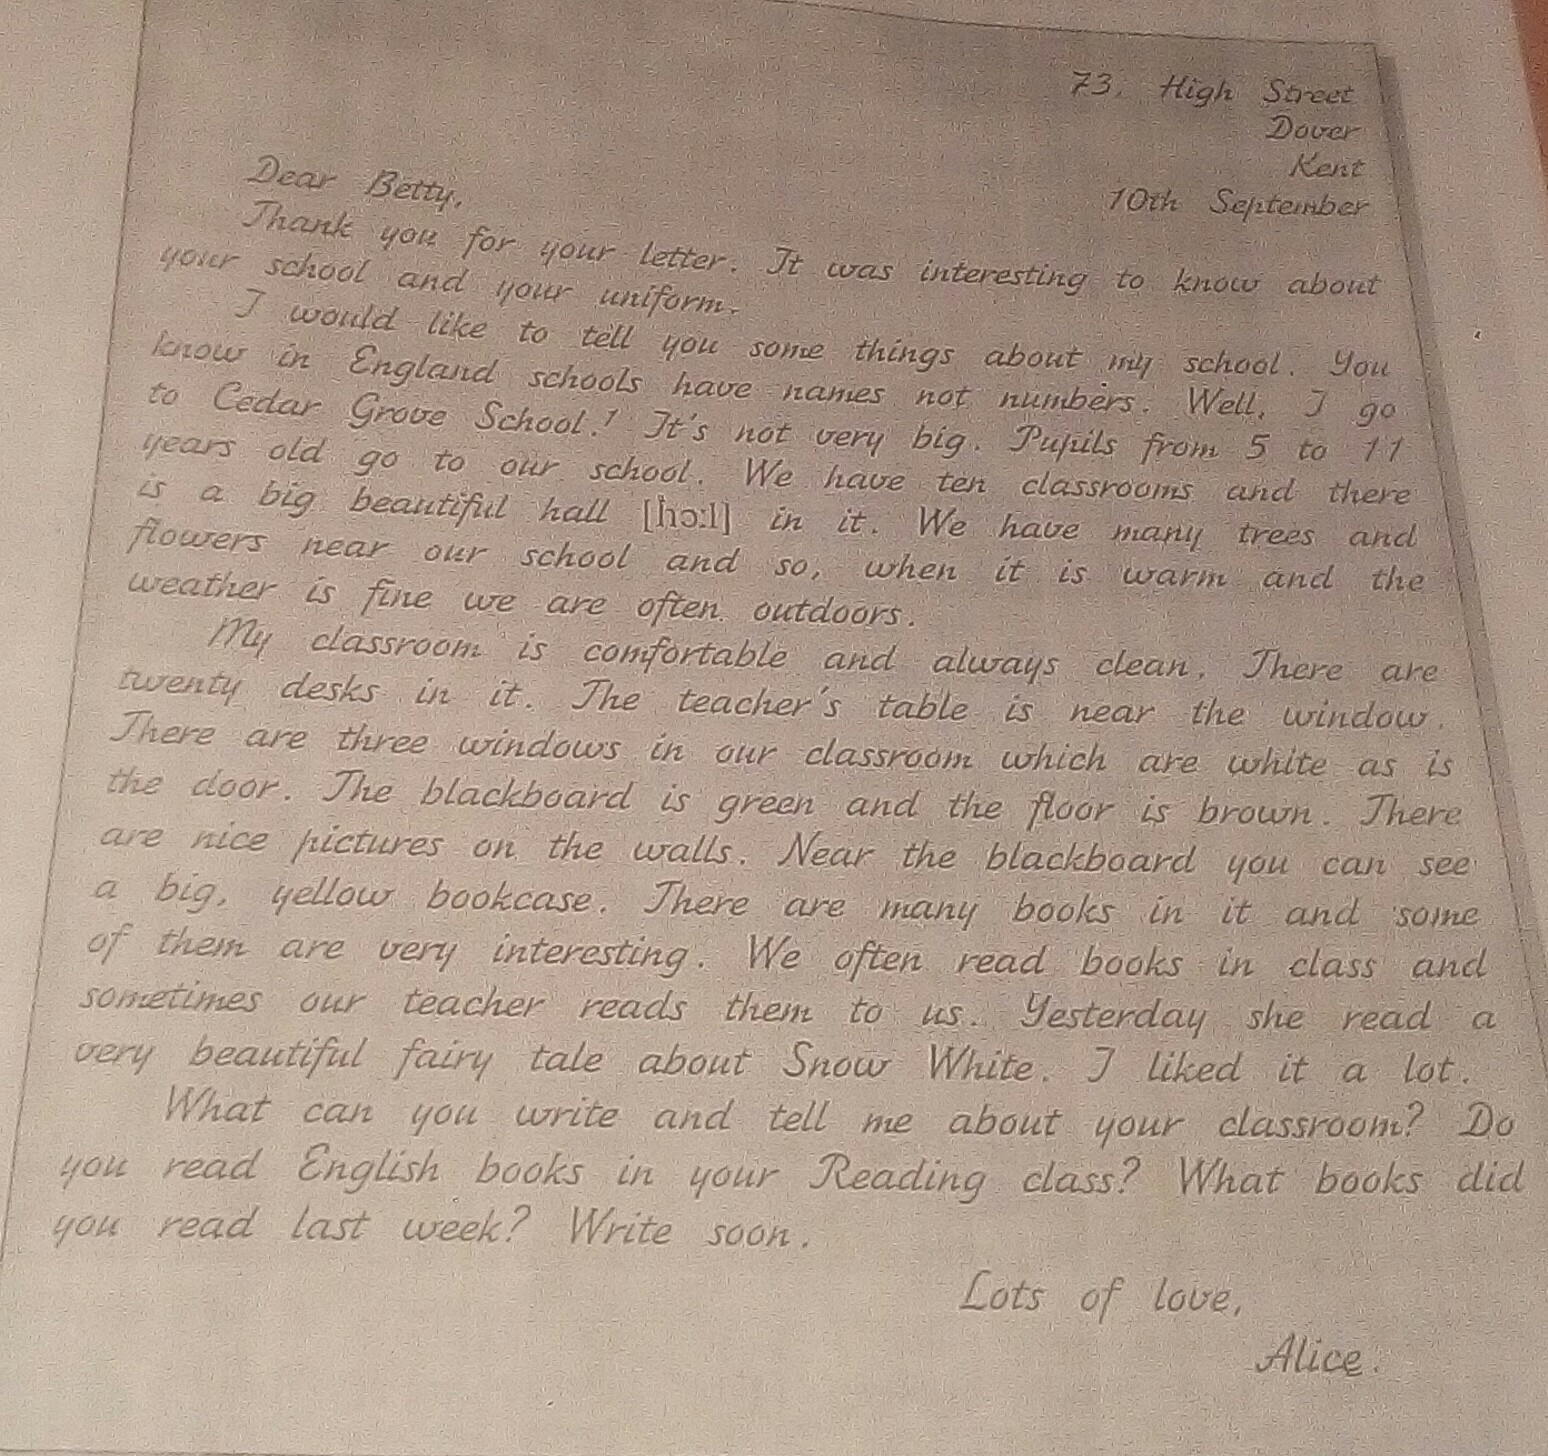 73, High Street
Dover
Kent
10th September
Dear Betty,
Thank you for your letter. It was interesting to know about
your school and your uniform.
I would like to tell you some things about my school. You
know in England schools have names not numbers. Well, I go
to Cedar Grove School.¹ It's not very big. Pupils from 5 to 11
years old go to our school. We have ten classrooms and there
is a big beautiful hall [hɔ:l] in it. We have many trees and
flowers near our school and so, when it is warm and the
weather is fine we are often outdoors.
My classroom is comfortable and always clean. There are
twenty desks in it. The teacher's table is near the window.
There are three windows in our classroom which are white as is
the door. The blackboard is green and the floor is brown. There
are nice pictures on the walls. Near the blackboard you can see
a big, yellow bookcase. There are many books in it and some
of them are very interesting. We often read books in class and
sometimes our teacher reads them to us. Yesterday she read a
very beautiful fairy tale about Snow White. I liked it a lot.
What can you write and tell me about your classroom? Do
you read English books in your Reading class? What books did
you read last week? Write soon.
Lots of love,
Alice.